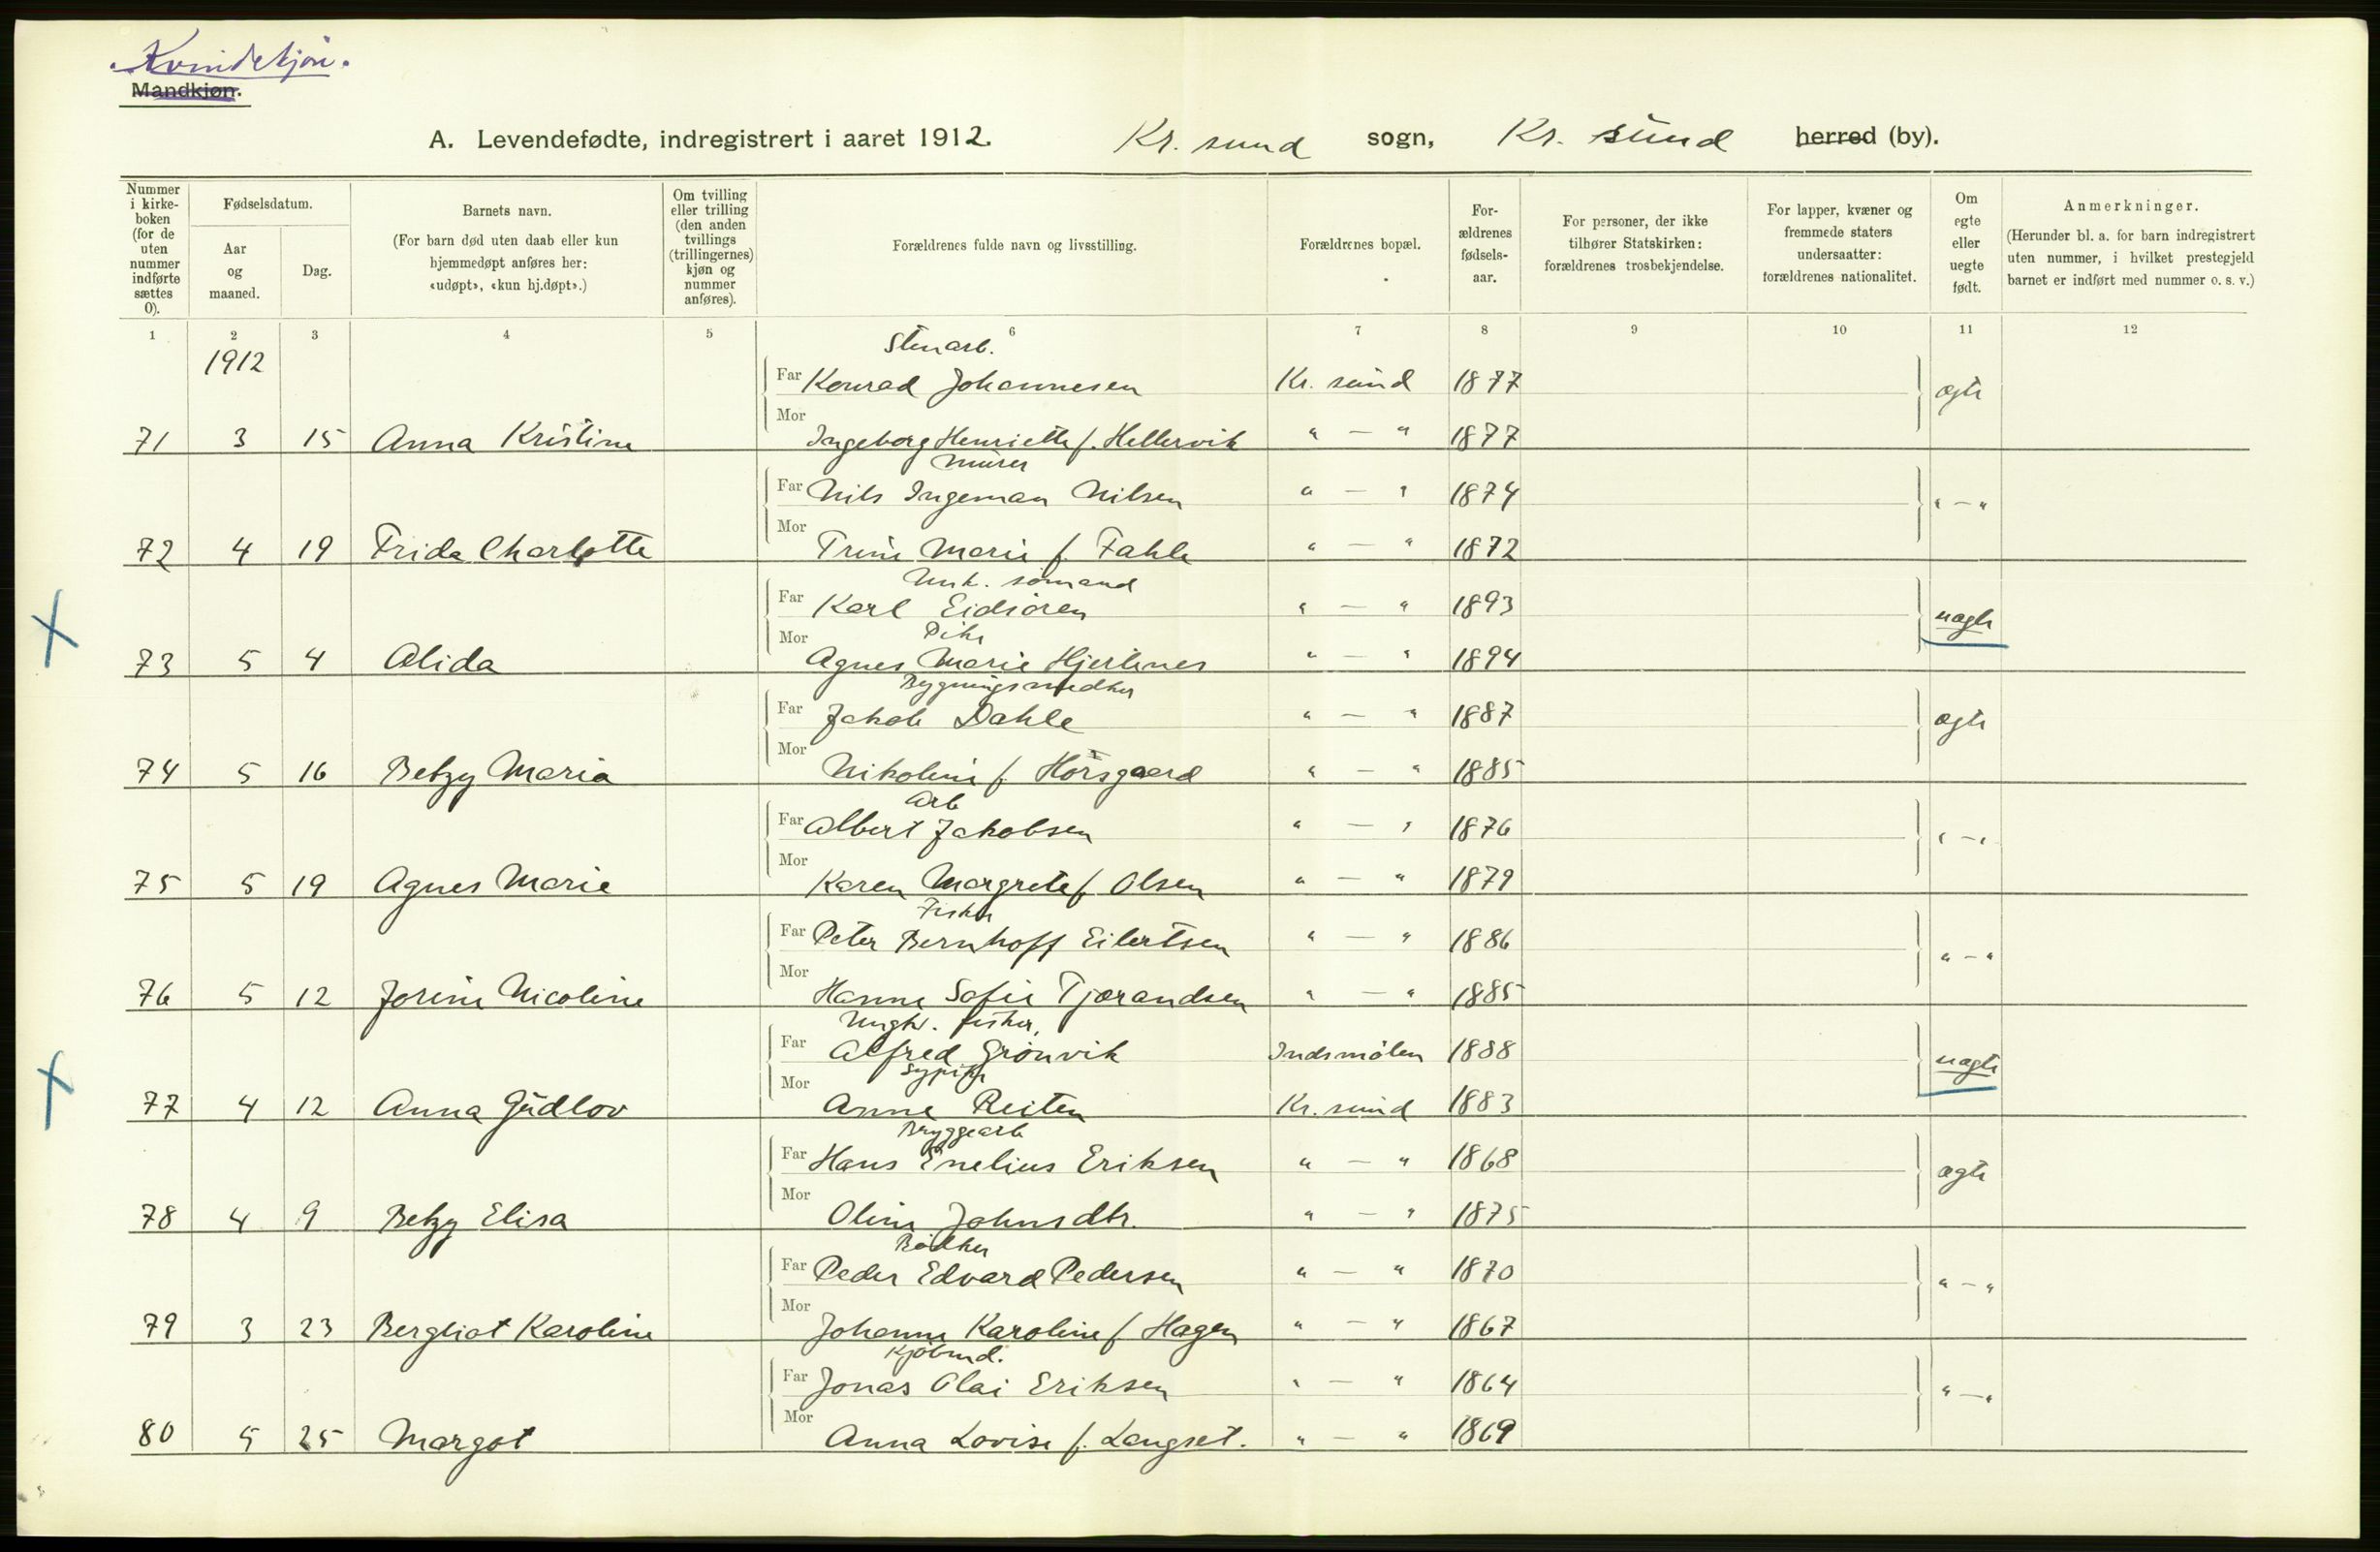 Kvindekjøn.
Mandkjøn.
A. Levendefødte, indregistrert i aaret 1912. Kr. sund sogn, Kr. sund herred (by).
Nummer i kirke-boken (for de uten nummer indførte sættes 0).
Fødselsdatum.
Aar og maaned.
Dag.
Barnets navn.
(For barn død uten daab eller kun hjemmedøpt anføres her: «udøpt», «kun hj.døpt».)
Om tvilling eller trilling (den anden tvillings (trillingernes) kjøn og nummer anføres).
Forældrenes fulde navn og livsstilling.
Forældrenes bopæl.
For-ældrenes fødsels-aar.
For personer, der ikke tilhører Statskirken: forældrenes trosbekjendelse.
For lapper, kvæner og fremmede staters undersaatter: forældrenes nationalitet.
Om egte eller uegte født.
Anmerkninger.
(Herunder bl. a. for barn indregistrert uten nummer, i hvilket prestegjeld barnet er indført med nummer o. s. v.)
1 2 3 4 5 6 7 8 9 10 11 12
1912
Stenarb.
Far Konrad Johannesen Kr. sund 1877 ægte
Mor
71 3 15 Anna Kristine Ingeborg Henriette f. Hellervik " — " 1877
Murer
Far Nils Ingeman Nilsen " — " 1874 " — "
Mor
72 4 19 Frida Charlotte Trine Marie f. Fahle " — " 1872
Unk. sømand
Far Karl Eidsøren " — " 1893 uægte
Mor Pike
73 5 4 Alida Agnes Marie Hjertenes " — " 1894
Bygningssnedker
Far Jakob Dahle " — " 1887 ægte
Mor
74 5 16 Betzy Maria Nikoline f. Hørsgaard " — " 1885
Arb
Far Albert Jakobsen " — " 1876 " — "
Mor
75 5 19 Agnes Marie Karen Margrete f. Olsen " — " 1879
Fisker
Far Peter Bernhoff Eilertsen " — " 1886 " — "
Mor
76 5 12 Jorine Nicoline Hanne Sofie Tjærandsen " — " 1885
Ungk. fisker,
Far Alfred Grønvik Indsmølen 1888 uægte
Mor Sypike
77 4 12 Anna Gudlov Anne Reiten Kr. sund 1883
Bryggearb
Far Hans Enelius Eriksen " — " 1868 ægte
Mor
78 4 9 Betzy Elisa Oline Johnsdtr. " — " 1875
Bødker
Far Peder Edvard Pedersen " — " 1870 " — "
Mor
79 3 23 Bergliot Karoline Johanne Karoline f. Hagen " — " 1867
Kjøbmd.
Far Jonas Olai Eriksen " — " 1864 " — "
Mor
80 5 25 Margot Anna Lovise f. Langset. " — " 1869